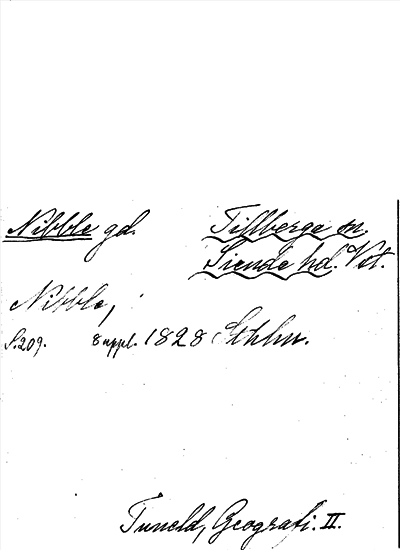 Nibble gd. Tillberge sn.
Siende hd. Vst.
Nibble,
S. 209. 8 uppl. 1828 Sthlm.
Tuneld, Geografi. II.